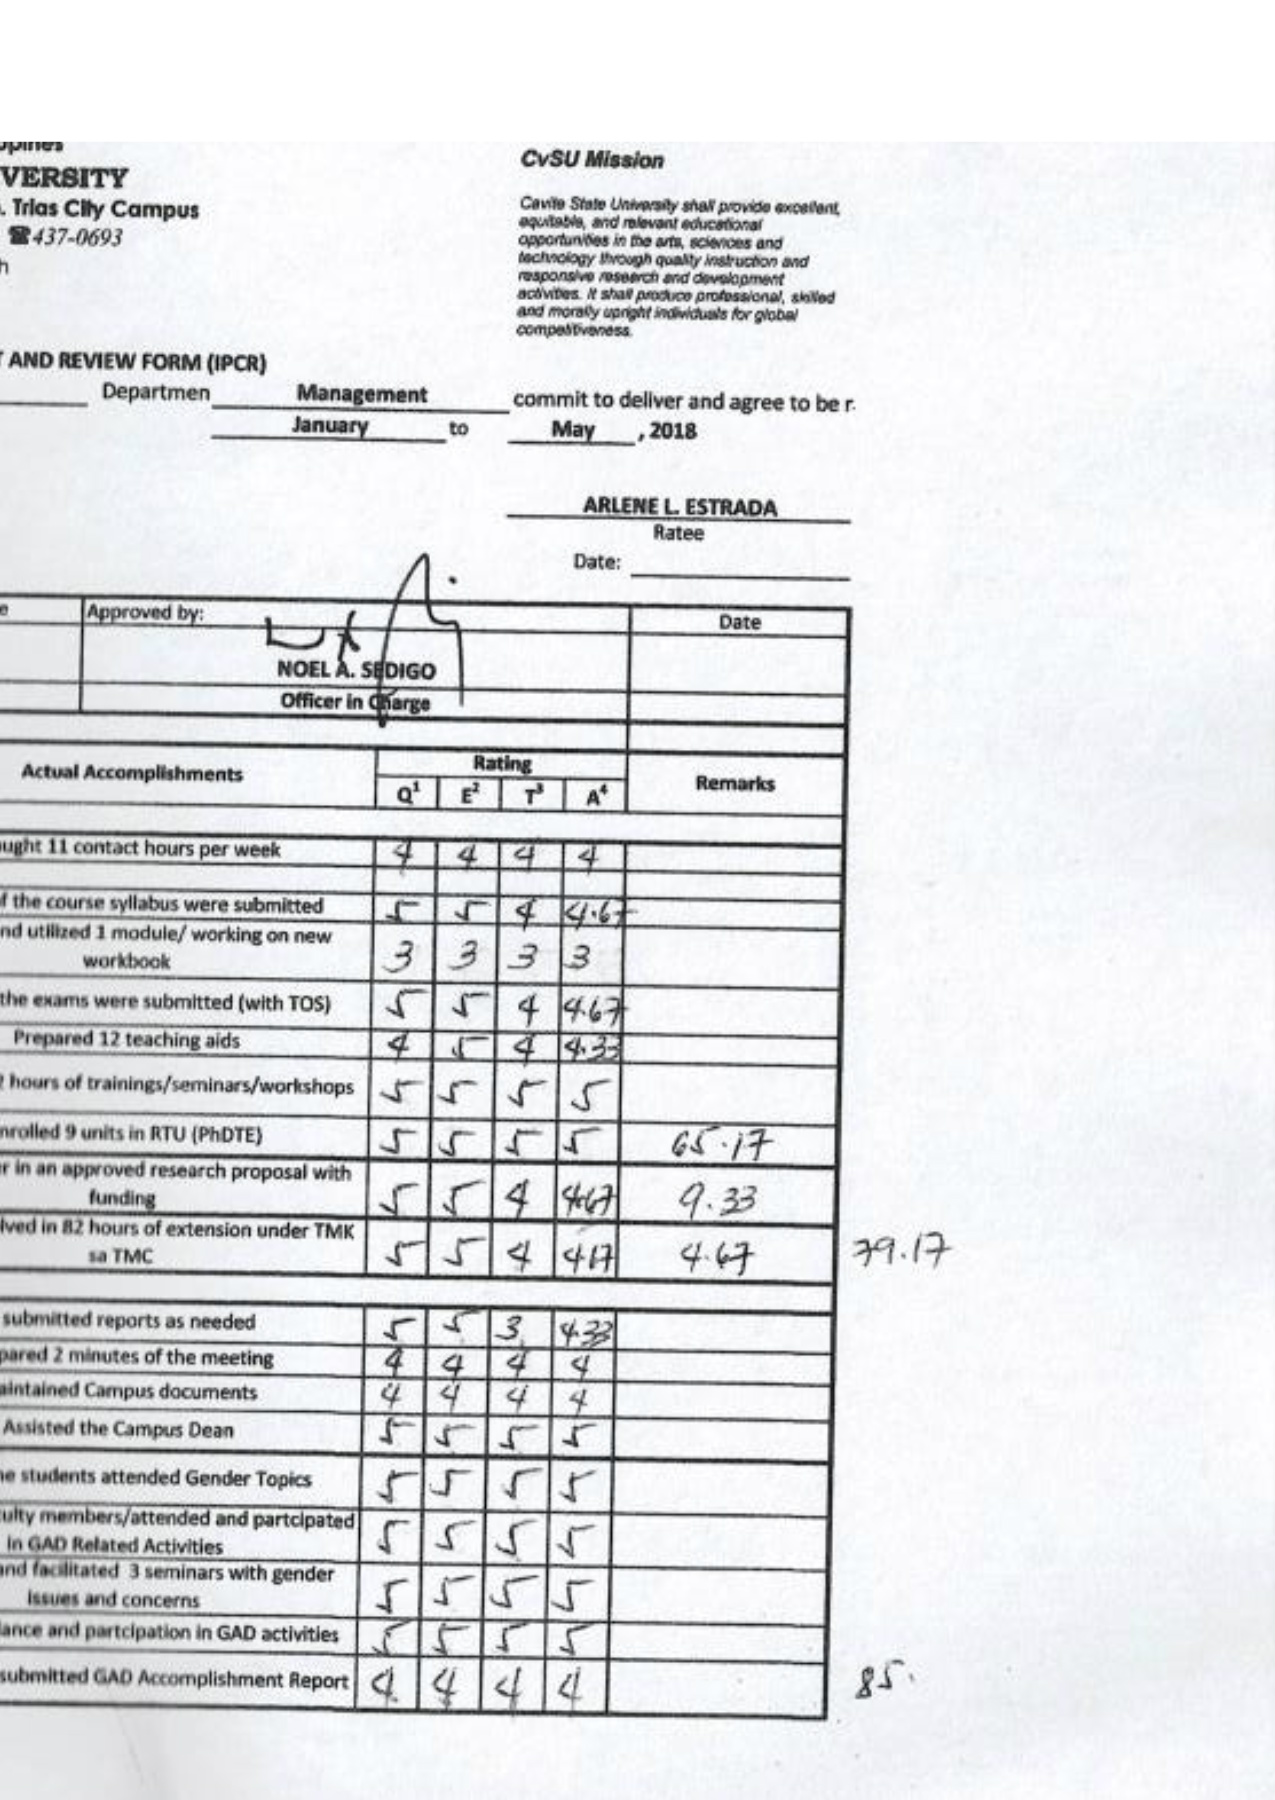 VERSITY
. Trias City Campus
☎437-0693
h
CvSU Mission
Cavite State University shall provide excellent,
equitable, and relevant educational
opportunities in the arts, sciences and
technology through quality instruction and
responsive research and development
activities. It shall produce professional, skilled
and morally upright individuals for global
competitiveness.
T AND REVIEW FORM (IPCR)
Departmen Management commit to deliver and agree to be r.
January to May , 2018
ARLENE L. ESTRADA
Ratee
Date:
e Approved by: Date
NOEL A. SEDIGO
Officer in Charge
Actual Accomplishments Rating Remarks
Q¹ E² T³ A⁴
ught 11 contact hours per week 4 4 4 4
f the course syllabus were submitted 5 5 4 4.67
nd utilized 1 module/ working on new
workbook 3 3 3 3
the exams were submitted (with TOS) 5 5 4 4.67
Prepared 12 teaching aids 4 5 4 4.33
2 hours of trainings/seminars/workshops 5 5 5 5
nrolled 9 units in RTU (PhDTE) 5 5 5 5 65.17
r in an approved research proposal with
funding 5 5 4 4.67 9.33
lved in 82 hours of extension under TMK
sa TMC 5 5 4 4.17 4.67 79.17
submitted reports as needed 5 5 3 4.33
pared 2 minutes of the meeting 4 4 4 4
aintained Campus documents 4 4 4 4
Assisted the Campus Dean 5 5 5 5
ne students attended Gender Topics 5 5 5 5
ulty members/attended and partcipated
in GAD Related Activities 5 5 5 5
and facilitated 3 seminars with gender
issues and concerns 5 5 5 5
lance and partcipation in GAD activities 5 5 5 5
submitted GAD Accomplishment Report 4 4 4 4 85.